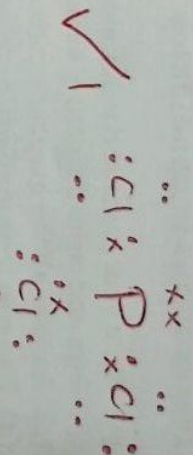 ✓ 1
:Cl: P :Cl:
:Cl: